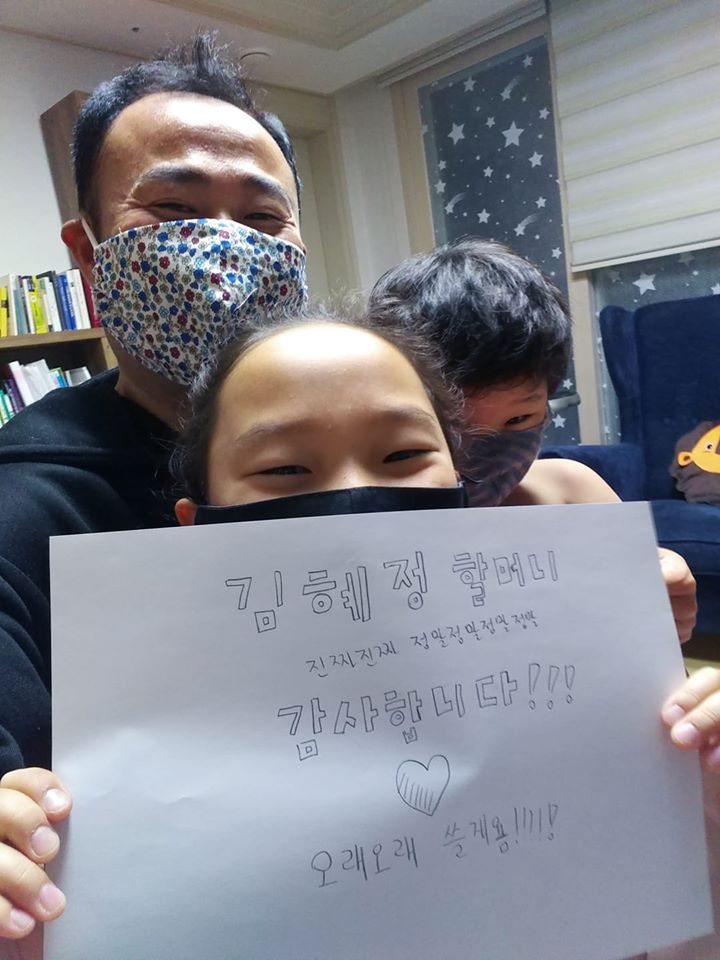 김혜정 할머니
진짜진짜 정말정말정말정말
감사합니다!!!
오래오래 쓸게용!!!!!